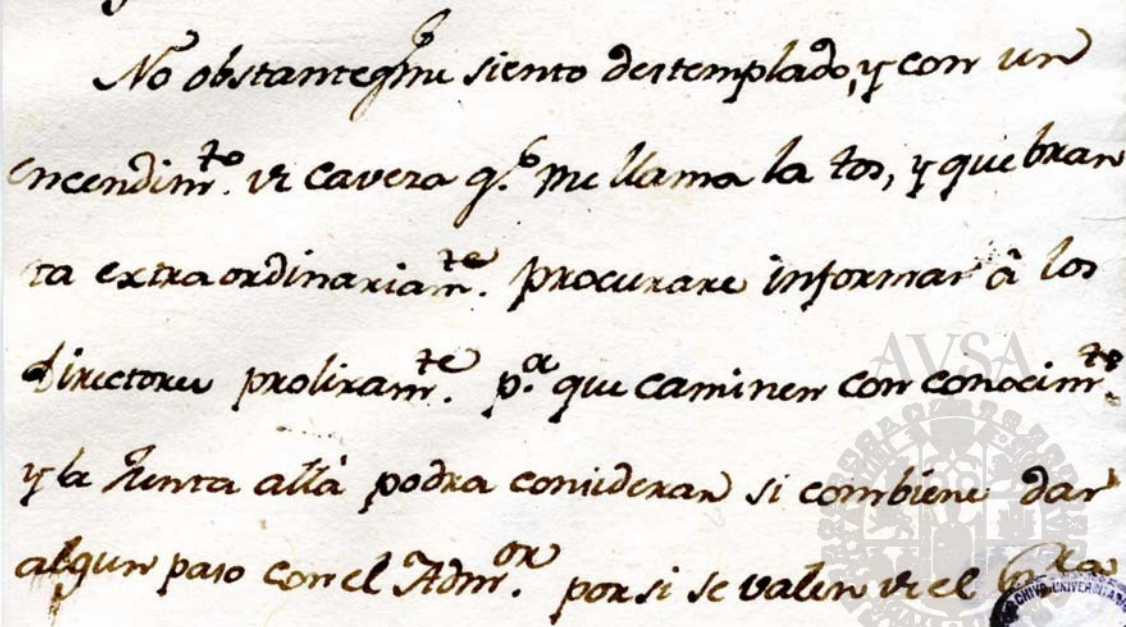 No obstante q.e me siento destemplado, y con un
encendim.to de caveza q.e me llama la tos, y quebran
ta extraordinariam.te procurare informar â los
directores prolixam.te p.a que caminen con conocim.to
y la Junta allà podra considerar si combiene dar
algun paso con el Adm.or por si se valen de el
AVSA